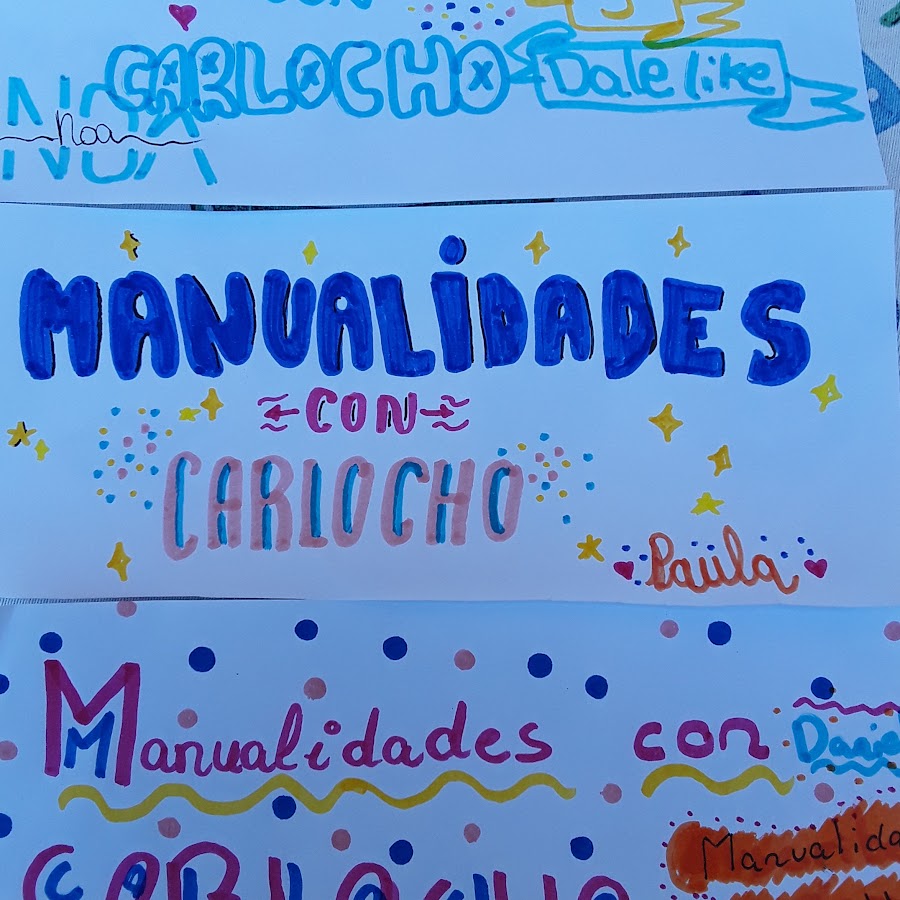 CON
CARLOCHO
Dale like
NOA
Noa
MANUALIDADES
CON
CARLOCHO
Paula
Manualidades con
CARLOCHO